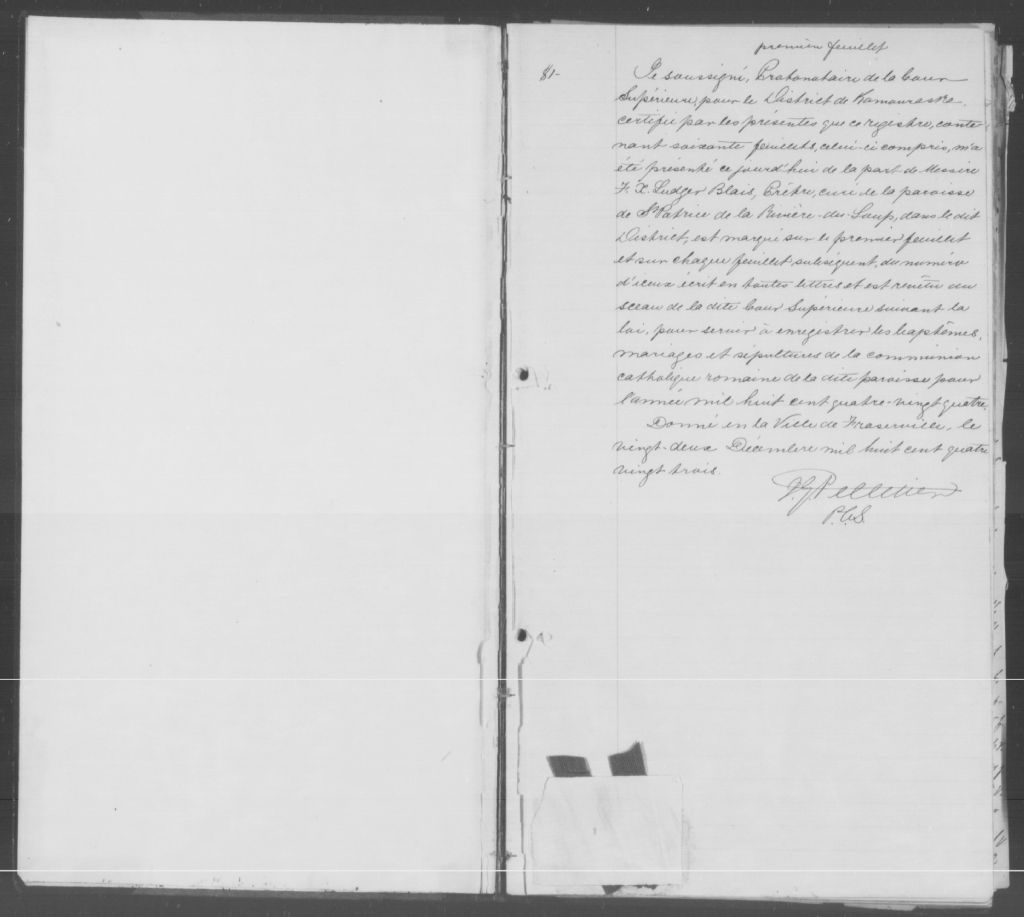 premier feuillet
81- Je soussigné, Protonotaire de la Cour
Supérieure, pour le District de Kamouraska,
certifie par les présentes que ce registre, conte
nant soixante feuillets, celui-ci compris, m'a
été présenté ce jourd'hui de la part de Messire
F. X. Ludger Blais, Prêtre, curé de la paroisse
de St Patrice de la Rivière-du-Loup, dans le dit
District, est marqué sur le premier feuillet
et sur chaque feuillet subséquent, du numéro
d'iceux écrit en toutes lettres et est revêtu du
sceau de la dite Cour Supérieure suivant la
loi, pour servir à enregistrer les baptêmes,
mariages et sépultures de la communion
catholique romaine de la dite paroisse pour
l'année mil huit cent quatre-vingt quatre.
Donné en la Ville de Fraserville, le
vingt-deux Décembre mil huit cent quatre
vingt trois.
Pelletier
P.C.S.